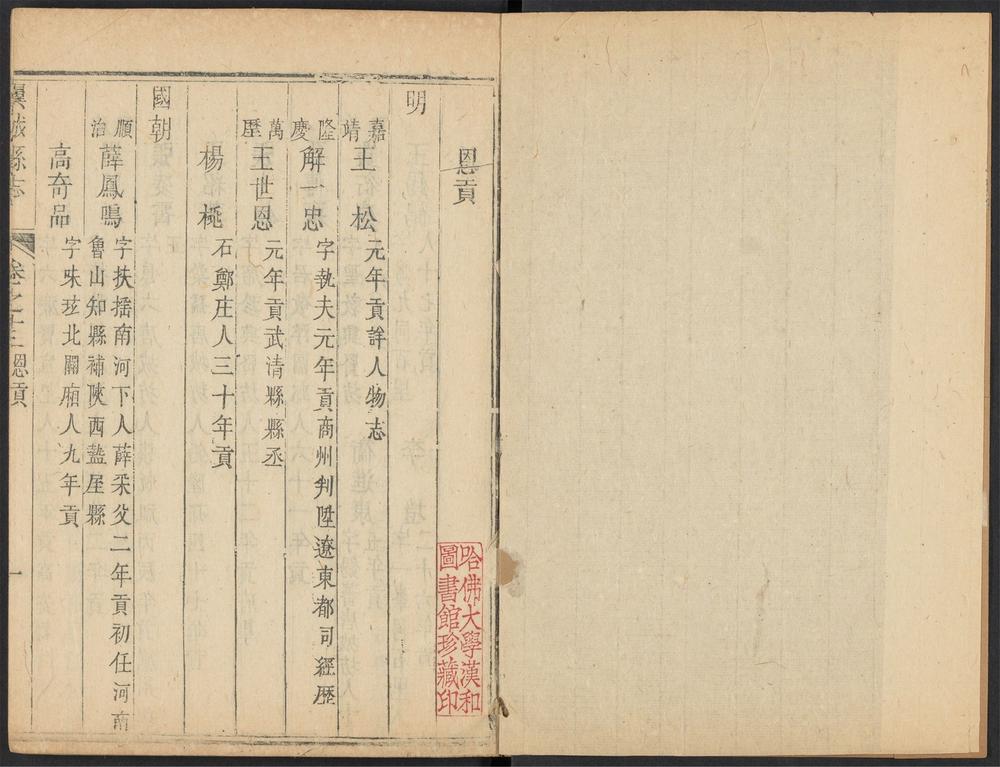 恩貢
明
嘉靖 王松 元年貢詳人物志
隆慶 解一忠 字執夫元年貢商州判陞遼東都司經歷
萬歷 王世恩 元年貢武清縣縣丞
楊 石鄭庄人三十年貢
國朝
順治 薛鳳鳴 字扶搖南河下人薛采父二年貢初任河南
魯山知縣補陝西盩厔縣
高奇品 字味玆北關廂人九年貢
城縣志 卷之十三恩貢 一
哈佛大學漢和
圖書館珍藏印